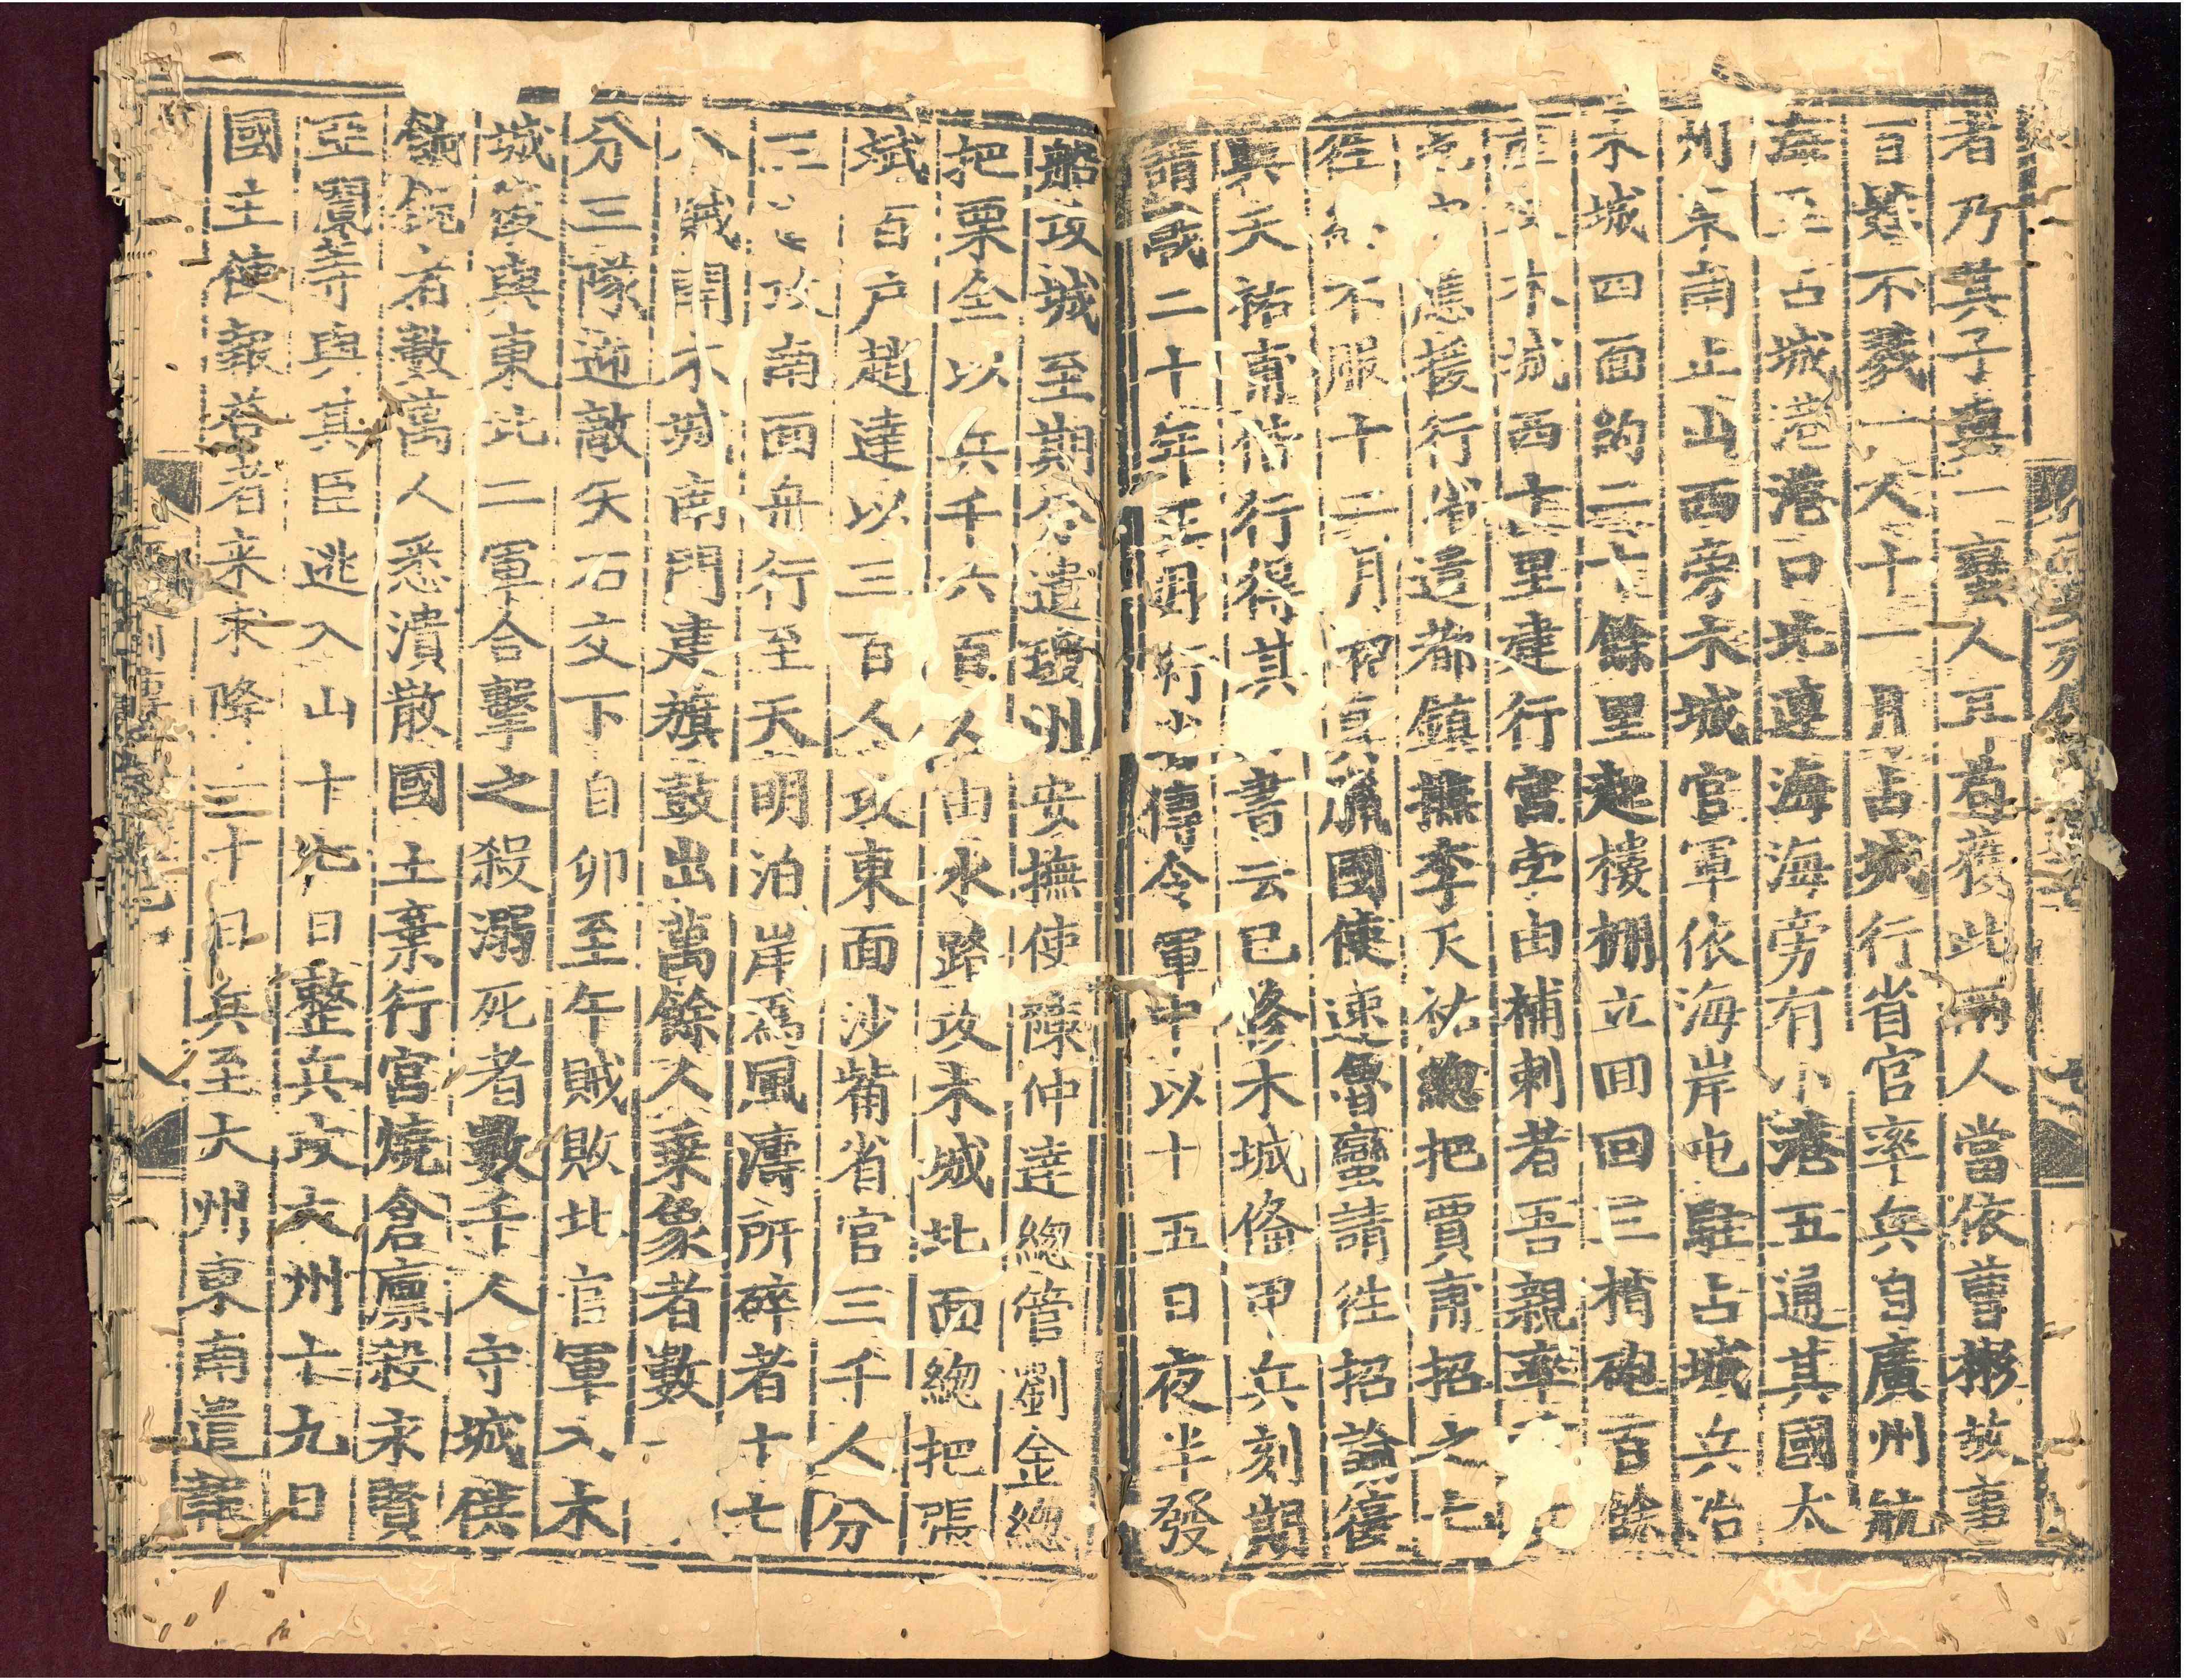 者乃其子輿一蠻人耳苟獲此兩人當依曹彬故事
百蠻不戮一人十一月占城行省官率兵自廣州航
海至占城港港口北連海海旁有小港五通其國大
州東南止山西旁木城官軍依海岸屯駐占城兵治
木城四面約二十餘里起樓棚立回回三梢砲百餘
座又木城西十里建行宮孛由補剌者吾親率
兵應援行省遣都鎮撫李天祐總把賈甫招之七
往終不服十二月招真臘國使速魯蠻請往招諭復
與天祐甫偕行得其書云已修木城備甲兵刻期
請戰二十年正月行省傳令軍中以十五日夜半發
船攻城至期分遣瓊州安撫使陳仲達總管劉金總
把栗全以兵千六百人由水路攻木城北面總把張
斌百戶趙達以三百人攻東面沙觜省官三千人分
三 攻南面舟行至天明泊岸為風濤所碎者十七
八賊開木城南門建旗鼓出萬餘人乘象者數
分三隊迎敵矢石交下自卯至午賊敗北官軍入木
城復與東北二軍合擊之殺溺死者數千人守城供
餉饋者數萬人悉潰散國主棄行宮燒倉廩殺永賢
亞蘭等與其臣逃入山十七日整兵攻大州十九日
國主使報答者來求降二十日兵至大州東南遣報